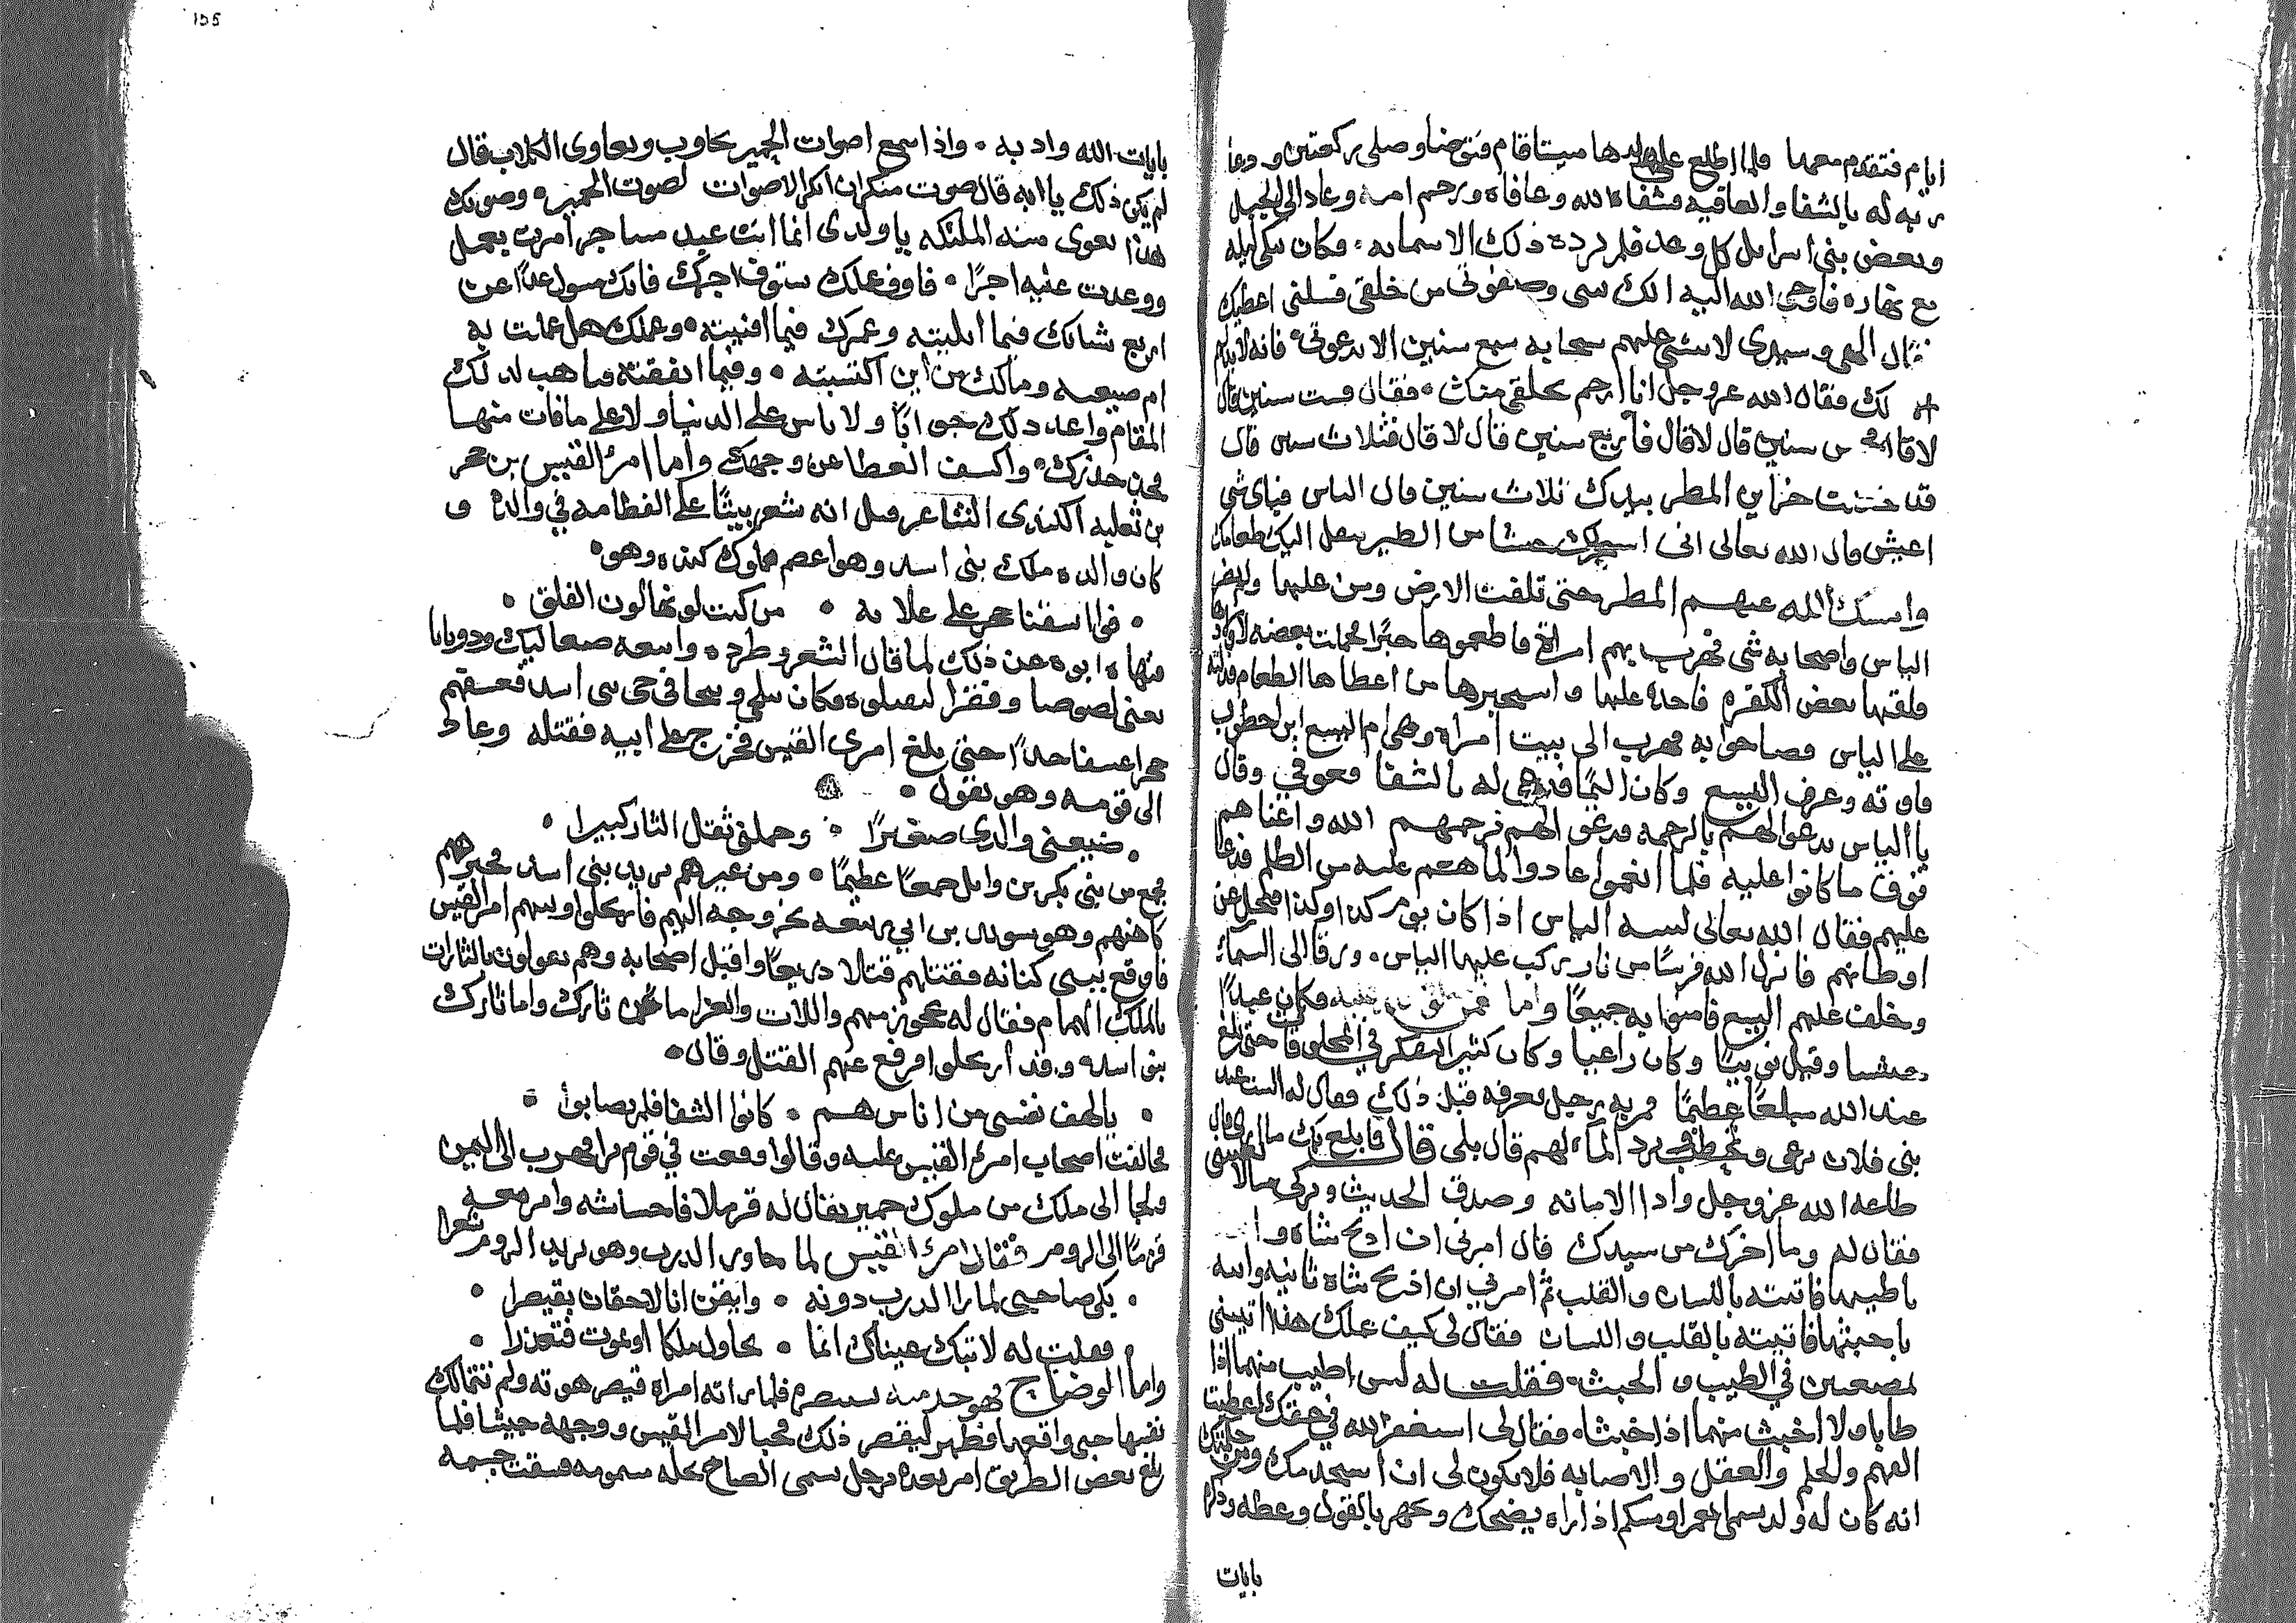 ايام فتقدم معهما فلما اطلع على ولدها ميتا قام فتوضا وصلى ركعتين ودعا
ربه له بالشفا والعاقيه فشفاه الله وعافاه ورحم امه وعاد الى الجبل
وبعض بنى اسرايل كل وعد فلم يرده ذلك الا سمايه وكان يبكى ليله
مع نهاره فاوحى الله اليه انك نبى وصفوتى من خلقى فسلنى اعطيك
فقال الهى وسيدى لا تنشئ عليهم سحابه سبع سنين الا بدعوتى فانه لا يذلهم
لك فقال الله عز وجل انا ارحم بخلقى منك فقال فست سنين قال
لا قال خمس سنين قال لا قال فاربع سنين قال لا قال فثلاث سنين قال
قد خزاين المطر بيدك ثلاث سنين قال الياس فباى شى
اعيش قال الله تعالى انى اسخر لك من الطير ينقل اليك طعامك
وامسك الله عنهم المطر حتى تلفت الارض ومن عليها
الياس واصحابه شى فمرت بهم امراة فاطعموها خبزا فحملت بعضه لاولادها
فلقيها بعض الكفره فاخذه عليها واستخبرها من اعطاها الطعام فدلته
على الياس فصاحوا به فهرب الى بيت امراة وهى ام اليسع ابن اخطوب
فاوته وعرف اليسع وكان اليما فدعى له بالشفا فعوفى وقال
يا الياس تدعوا لهم بالرحمه فدعى لهم فرحمهم الله واغناهم
فوق ما كانوا عليه فلما انعموا عادوا لما هم عليه من الظلم فدعا
عليهم فقال الله تعالى لنبيه الياس اذا كان يوم كذا وكذا فتحول عن
اوطانهم فانزل الله فرسا من نار يركب عليها الياس ورقا الى السماء
وخلف عليهم اليسع فامنوا به جميعا واما وكان عبدا
حبشيا وقيل نوبيا وكان راعيا وكان كثير التفكر فى المخلوقات حتى بلغ
عند الله مبلغا عظيما فمر به رجل يعرفه قبل ذلك فقال له الست عبد
بنى فلان ترعى وتحتطب وترد الماء لهم قال بلى قال فما بلغ بك ما ارى قال
طاعه الله عز وجل وادا الامانه وصدق الحديث وتركى ما لا يعنينى
فقال له وما اخرك من سيدك قال امرنى ان اذبح شاه وا
باطيبها فاتيته باللسان والقلب ثم امرنى ان اذبح شاه ثانيه واتيه
باخبثها فاتيته بالقلب واللسان فقال لى كيف عملك هذا اتيتنى
بمضغتين فى الطيب والخبث فقلت له ليس اطيب منهما اذا
طابا ولا اخبث منهما اذا خبثا فقال لى استغفر الله فى حقك اعطيت
الفهم والحلم والعقل والاصابه فلا يكون لى ان استخدمك ومن
انه كان له ولد يسمى اذا راه يضحك ويجهر بالقول وعظه وذكره
بايات
155
بايات الله وادبه واذا سمع اصوات الحمير تجاوب وتعاوى الكلاب قال
لم يكن ذلك يا ابه قال صوت منكر ان انكر الاصوات لصوت الحمير وصوتك
هذا تعوى منه الملئكه يا ولدى انما انت عبد مستاجر امرت بعمل
ووعدت عليه اجرا فاوف عملك ستوفى اجرك فانك مسول غدا عن
اربع شبابك فيما ابليته وعمرك فيما افنيته وعملك هل عملت به
ام ضيعته ومالك من اين اكتسبته وفيما انفقته فتاهب لذلك
المقام واعد ذلك جوابا ولا تاس على الدنيا ولا على ما فات منها
فخذ حذرك واكشف الغطا عن وجهك واما امرئ القيس بن حجر
بن ثعلبه الكندى الشاعر قيل انه شعر بيتا على الفطامه فى والده و
كان والده ملك بنى اسد وهو اعصم ملوك كنده وهو
فوانا سقنا حجر على علاته من كميت لونها لون الفلق
فنهاه ابوه عن ذلك لما قال الشعر وطرده واتبعه صعاليك وذوبانا
يعنى لصوصا وفقرا ليقتلوه فكان فى حى بنى اسد فعسفهم
حجرا عسفا جدا حتى بلغ امرى القيس فخرج على ابيه فقتله وعاد
الى قومه وهو يقول
ضيعنى والدى صغيرا وحملنى ثقل الثار كبيرا
فجمع من بنى بكر بن وايل جمعا عظيما ومن غيرهم يريد بنى اسد فخبرهم
كاهنهم وهو بن ابى ربيعه بخروجه اليهم فارتحلوا امر القيس
فاوقع ببنى كنانه فقتلهم قتلا ذريعا واقبل اصحابه وهم يقولون يا لثارات
الملك الهمام فقال له عجوز منهم واللات والعزا ما نحن ثارك واما ثارك
بنوا اسد وقد ارتحلوا فرفع عنهم القتل وقال
يا لهف نفسى من اناس هم كانوا الشفا فلم يصابوا
فخالفت اصحاب امرئ القيس عليه وقالوا وقعت فى قوم برا فهرب الى اليمن
ولجا الى ملك من ملوك حمير يقال له قرملا وامر معه
قرما الى الروم فقال امرئ القيس لما جاوز الدرب وهو يريد الروم شعرا
بكى صاحبى لما راا الدرب دونه وايقن انا لاحقان بقيصرا
فقلت له لا تبك عيناك انما نحاول ملكا او نموت فنعذرا
واما الوضاح فهو فلما راته امراة قيصر هوته ولم تتمالك
نفسها حتى واقعها فظهر لقيصر ذلك محبا لامر القيس ووجهه جيشا فلما
بلغ بعض الطريق امر بعده رجل يسمى الصاح بحله سمومه فسقت جسمه